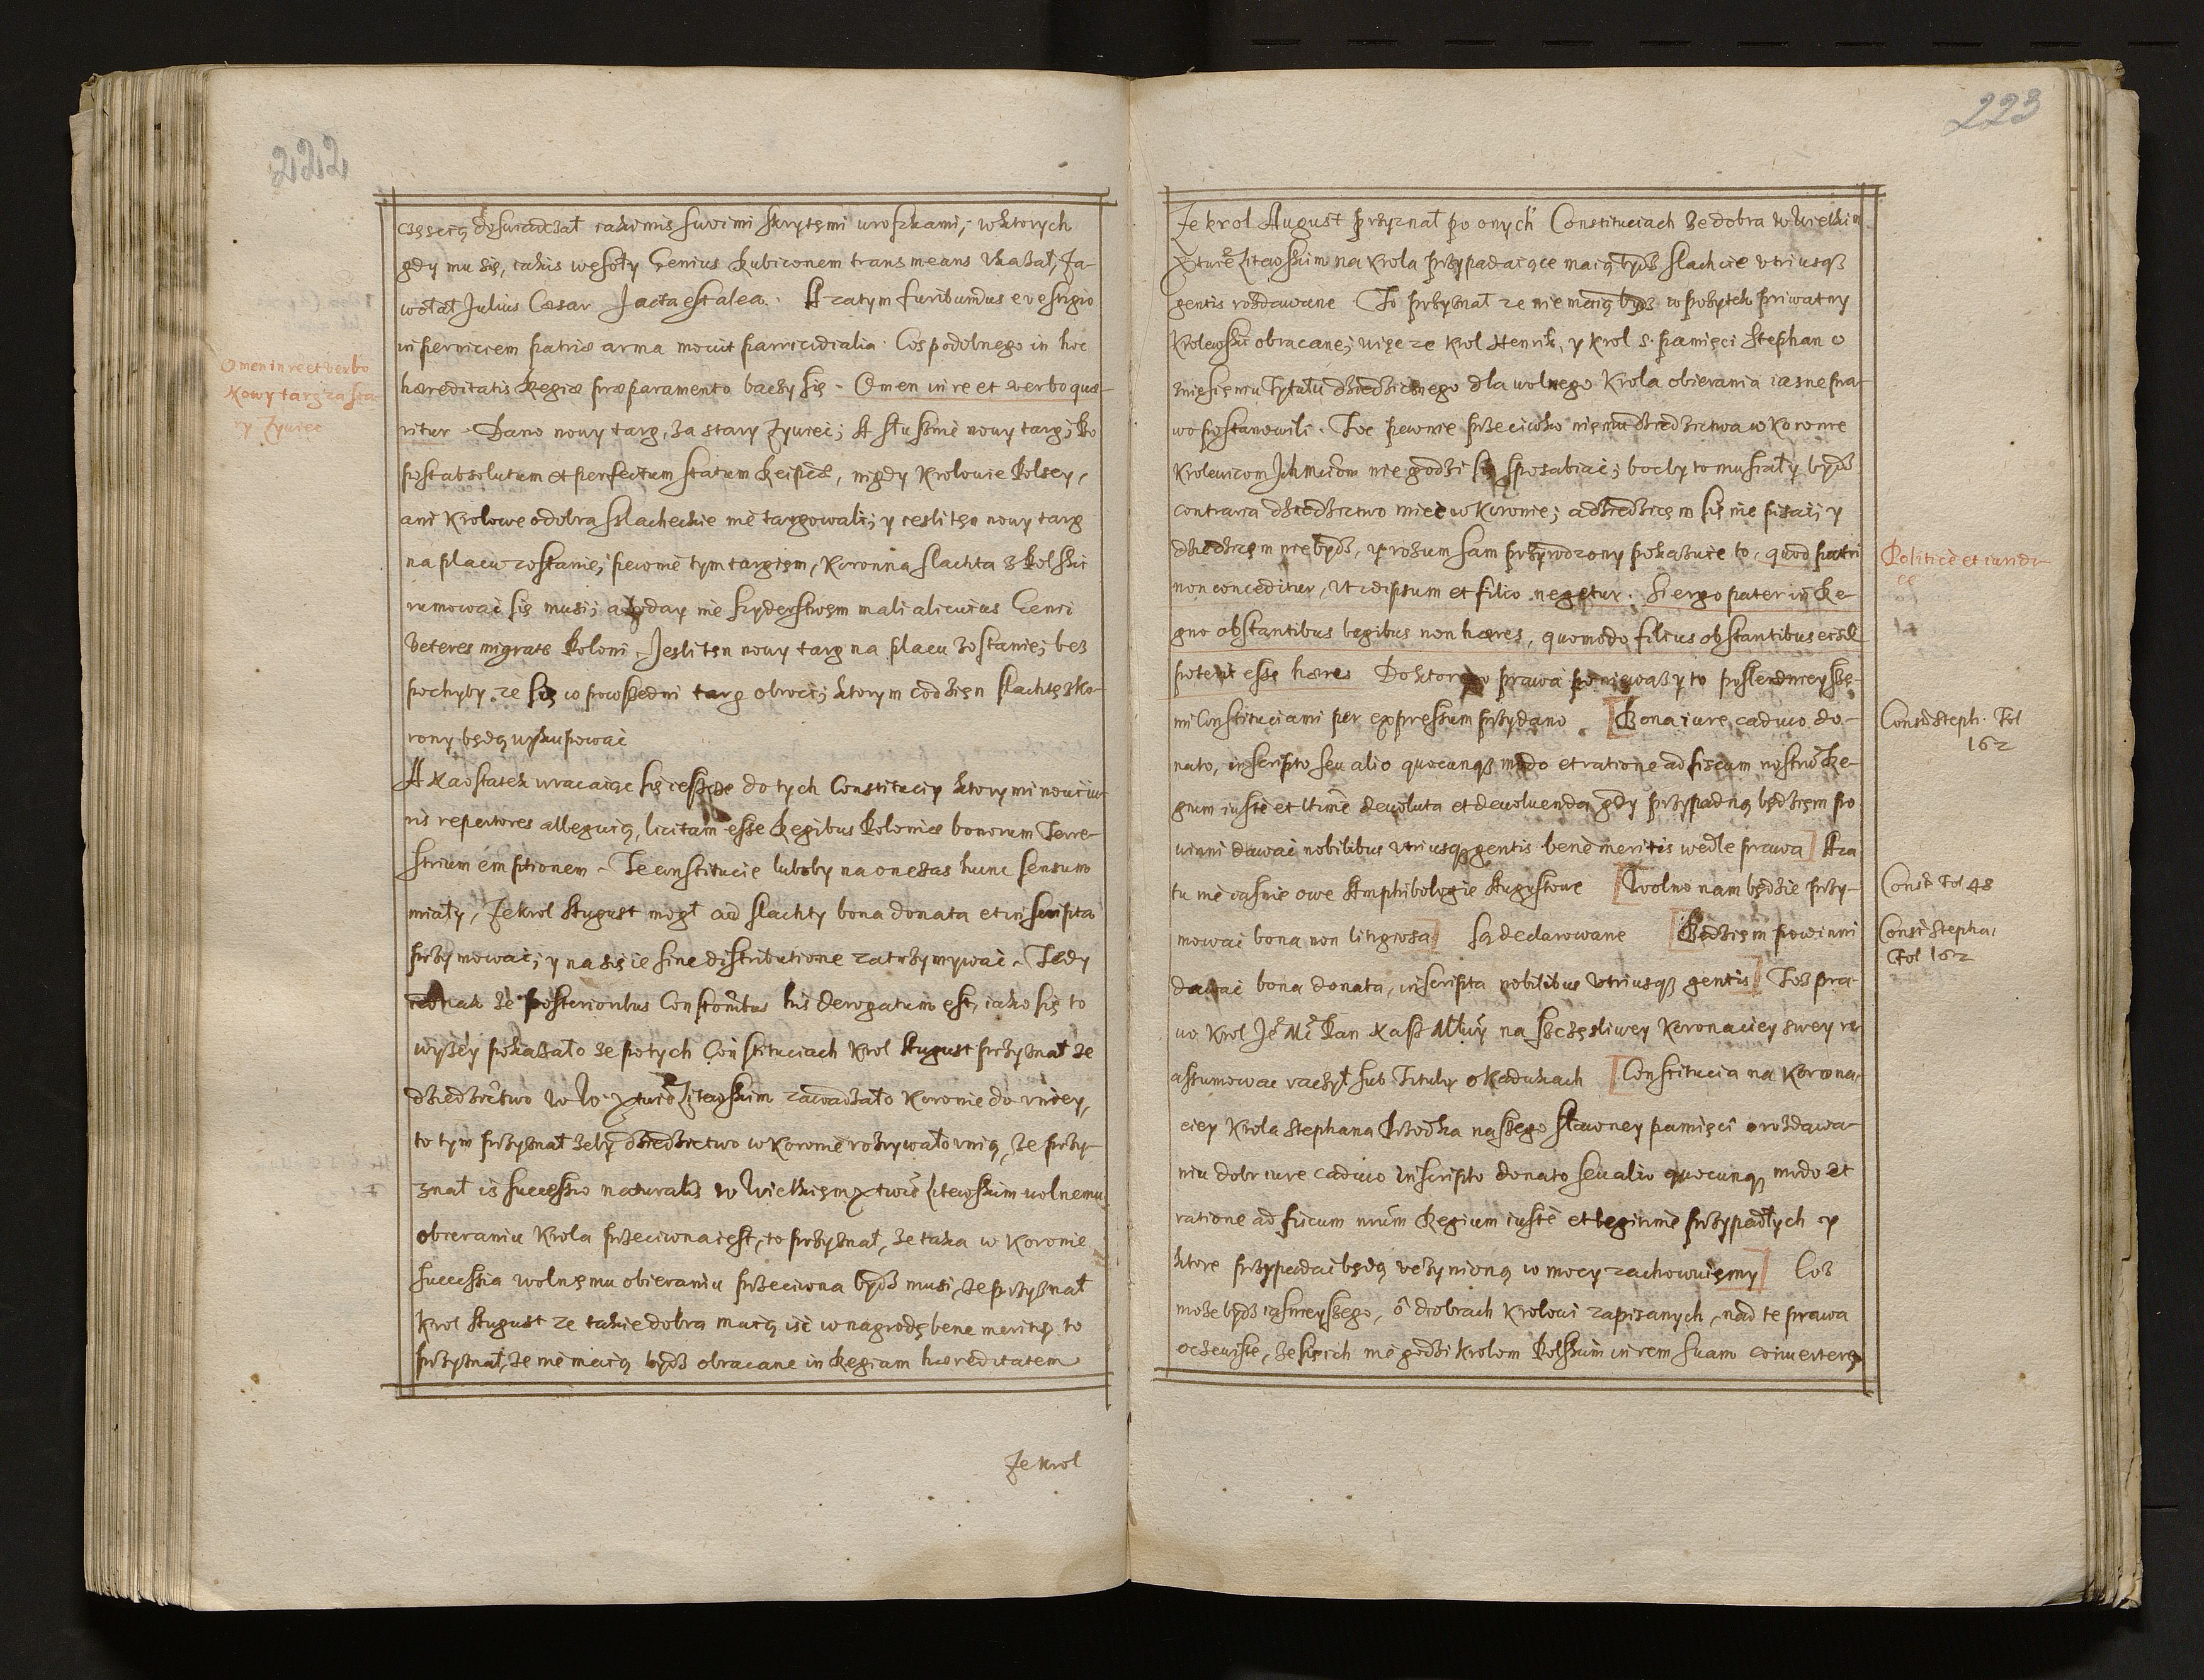 222
częscią doswiadczał iakimis swoimi skrytęmi wroszkami, w ktorych
gdy mu się, iakis wesoły Genius Rubiconem transmeans vkazał, Za-
wołał Julius Cæsar Jacta est alea. A zatym furibundus e vestigio
in perniciem patriæ arma mouit parricidialia. Cos podobnego in hoc
hæreditatis Regiæ præparamento baczy się. Omen in re et verbo quæ-
ritur. Dano nowy targ, za stary Zywiec; A słusznie nowy targ; Bo
post absolutum et perfectum statum Reipcæ, nigdy Krolowie Polscy,
ani Krolowe o dobra slacheckie nie targowali; y iesli tęn nowy targ
na placu zostanie, pewnie tym targięm, Koronna slachta z Polski
rumowac się musi; a boday nie szyderstwęm mali alicuius Genii
Veteres migrate Coloni. Jesli tęn nowy targ na placu zostanie; bez
pochyby ze się w powszedni targ obroci; ktorym codzięn slachtę z Ko-
rony będą wykupowac
A Na ostatek wracaiąc się ieszcze do tych Constituciy ktorymi noui iu-
ris repertores alleguią, licitam esse Regibus Poloniæ bonorum Terre-
strium emptionem. Te constitucie luboby na on czas hunc sensum
miały, Ze krol August mogł ad slachty bona donata et inscripta
przymowac; y na się ie sine distributione zatrzymywac. Tedy
iednak ze posterioribus Constõnibus his derogatum est, iako się to
wyszey pokazało ze po tych Constituciach Krol August przyznał ze
dziedzictwo w W. Xtwie Litewskim zawadzało Koronie do vniey,
to tym przyznał zeby dziedzictwo w Koronie rozrywało vnią, Ze przy-
znał is successio naturalis w Wielkięm Xtwie Litewskim wolnemu
obieraniu Krola przeciwna iest, to przyznał, ze taka w Koronie
successia wolnęmu obieraniu przeciwna bydz musi, ze przyznał
Krol August ze takie dobra maią isc w nagrodę bene meritis, to
przyznał, ze nie maią bydz obracane in Regiam hæreditatem
Ze krol
Omen in re et verbo
Nowy targ za sta-
ry Zywiec
223
Ze krol August przyznał po onych Constituciach ze dobra w Wielkim
Xtwie Litewskim na Krola przypadaiące maią bydz slachcie vtriusq;
gentis rozdawane To przyznał ze nie maią bydz w pozytek priwatny
Krolewski obracane; więc ze Krol Henrik, y Krol s. pamięci Stephan o
zniesięniu Tytułu dziedzicznego dla wolnego Krola obierania iasne pra-
wo postanowili. Toc pewnie przeciwko nięmu dziedzictwa w Koronie
Krolewicom Jchmciom nie godzi się sposabiac; bocby to musiały bydz
contraria dziedzictwo miec w Koronie; a dziedzicęm się nie pisac; y
dziedzicęm nie bydz, y rozum sam przyrodzony pokazuie to, quod patri
non conceditur, vt id ipsum et filio negetur. Si ergo pater in Re-
gno obstantibus legibus non hæres, quomodo filius obstantibus eisdẽ
poterit esse hæres Do ktorego prawa poniewasz y to poslednieyszę-
mi Constituciami per expressum przydano [Bona iure caduco do-
nato, inscripto seu alio quocunq; modo et ratione ad fiscum nostrũ Re-
gium iuste et ltime deuoluta et deuoluenda, gdy przypadną będzięm po
winni dawac nobilibus vtriusq; gentis bene meritis wedle prawa] Aza
tu nie iasnie owe Amphibologie Augustowe [Wolno nam będzie przy-
mowac bona non litigiosa] są declarowane [Będzięm powinni
dawac bona donata, inscripta nobilibus vtriusq; gentis] Toz pra-
wo Krol Je Mc Pan Nasz Mlwy na szczęsliwey Koronaciey swey re-
assumowac raczył sub Titulo o Kadukach [Constitucia na Korona-
ciey Krola Stephana Przodka naszego sławney pamięci o rozdawa-
niu dobr iure caduco inscripto donato seu alio quocunq; modo et
ratione ad fiscum nrum Regium iuste et legitime przypadłych y
ktore przypadac będą vczynioną w mocy zachowuięmy] Coz
moze bydz iasnieyszego, o dobrach Krolowi zapisanych, nad te prawa
oczewiste, ze się ich nie godzi Krolom Polskim in rem suam conuertere
Politicè et iuridi-
ce
Const. Steph. Fol
162
Const. Fol 48
Const Stepha.
Fol 162